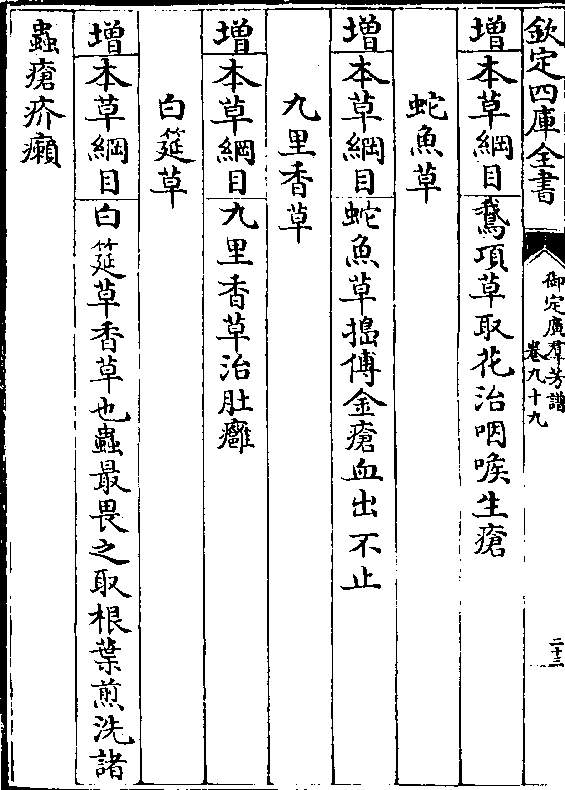 欽定四庫全書
御定廣群芳譜
卷九十九
二十三
增本草綱目鵞項草取花治咽喉生瘡
蛇魚草
增本草綱目蛇魚草搗傅金瘡血出不止
九里香草
增本草綱目九里香草治肚癰
白筵草
增本草綱目白筵草香草也蟲最畏之取根葉煎洗諸
蟲瘡疥癩